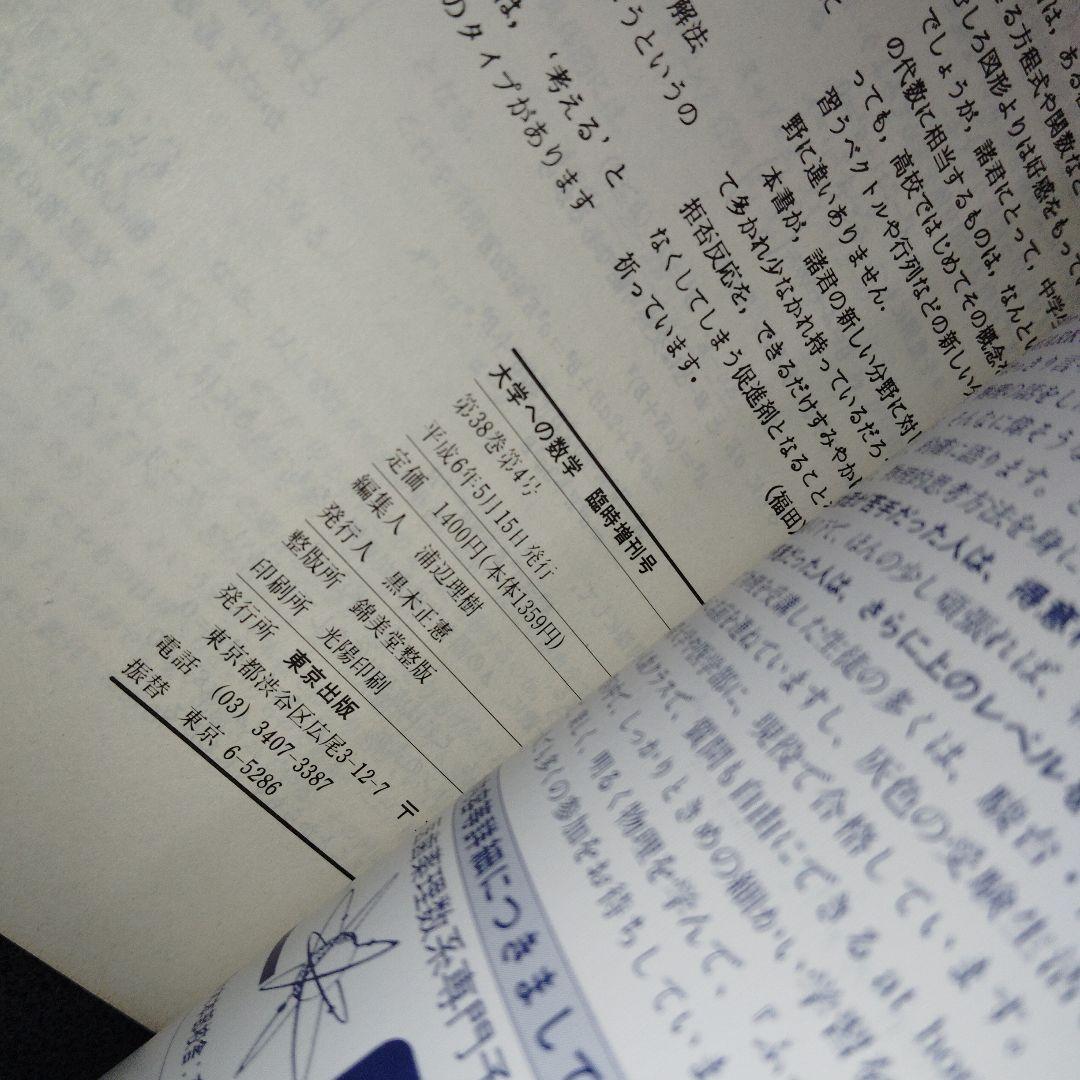 解法
うというの
は，‘考える’と
のタイプがあります
る方程式や関数など
しろ図形よりは好感をもって
でしょうが，諸君にとって，中学
の代数に相当するものは，なんとい
っても，高校ではじめてその概念
習うベクトルや行列などの新しい
野に違いありません．
本書が，諸君の新しい分野に対し
て多かれ少なかれ持っているだろ
拒否反応を，できるだけすみやか
なくしてしまう促進剤となること
祈っています．
（福田）
大学への数学 臨時増刊号
第38巻第4号
平成6年5月15日発行
定価 1400円(本体1359円)
編集人 浦辺理樹
発行人 黒木正憲
整版所 錦美堂整版
印刷所 光陽印刷
発行所 東京出版
東京都渋谷区広尾3-12-7 〒
電話 (03) 3407-3387
振替 東京 6-5286
思考方法を身に
だった人は，得意
ば，ほんの少し頑張れば，
だった人は，さらに上のレベル
した生徒の多くは，駿台・
を重ねていますし，灰色の受験生活
医学部に，現役で合格しています。
クラスで，質問も自由にできる at home
しっかりときめの細かい学習を
明るく物理を学んで，「ふ
多くの参加をお待ちしていま
詳細につきまして
理数系専門